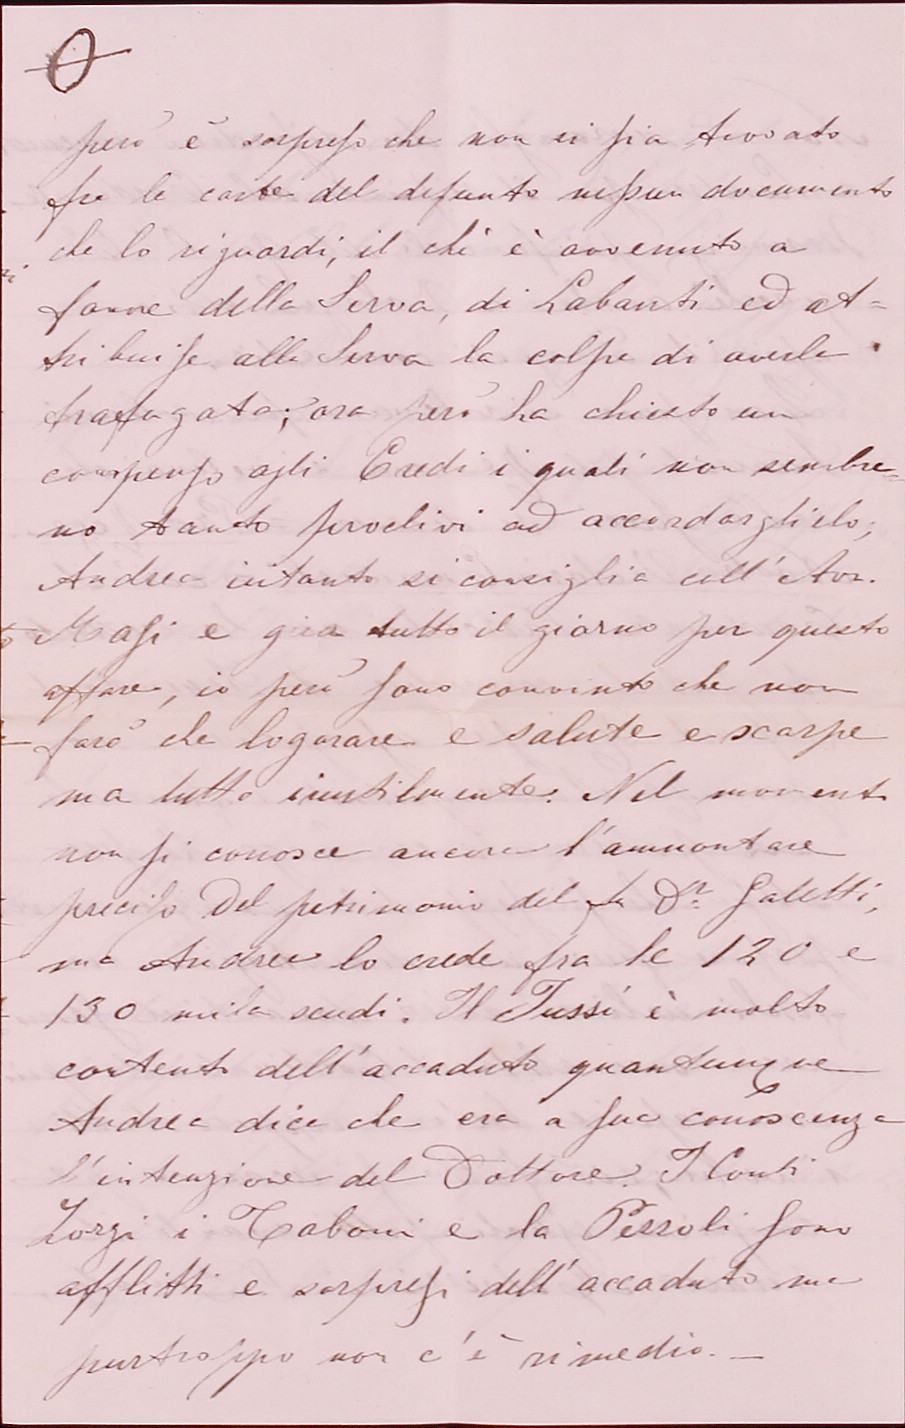 però è sorpreso che non si sia trovato
fra le carte del defunto nessun documento
che lo riguardi, il chè è avvenuto a
favore della Serva, di Labanti ed at-
tribuisce alla Serva la colpa di averle
trafugate; ora però ha chiesto un
compenso agli Eredi i quali non sembra-
no tanto proclivi ad accordarglielo;
Andrea intanto si consiglia coll'Avv.
Masi e gira tutto il giorno per questo
affare, io però sono convinto che non
farà che logorare e salute e scarpe
ma tutto inutilmente. Nel momento
non si conosce ancora l'ammontare
preciso del patrimonio del fu Dr. Galetti,
ma Andrea lo crede fra le 120 e
130 mila scudi. Il Tussi è molto
contento dell'accaduto quantunque
Andrea dica che era a sua conoscenza
l'intenzione del Dottore. I Conti
Zorzi i Taboni e la sono
afflitti e sorpresi dell'accaduto ma
purtroppo non c'è rimedio. —